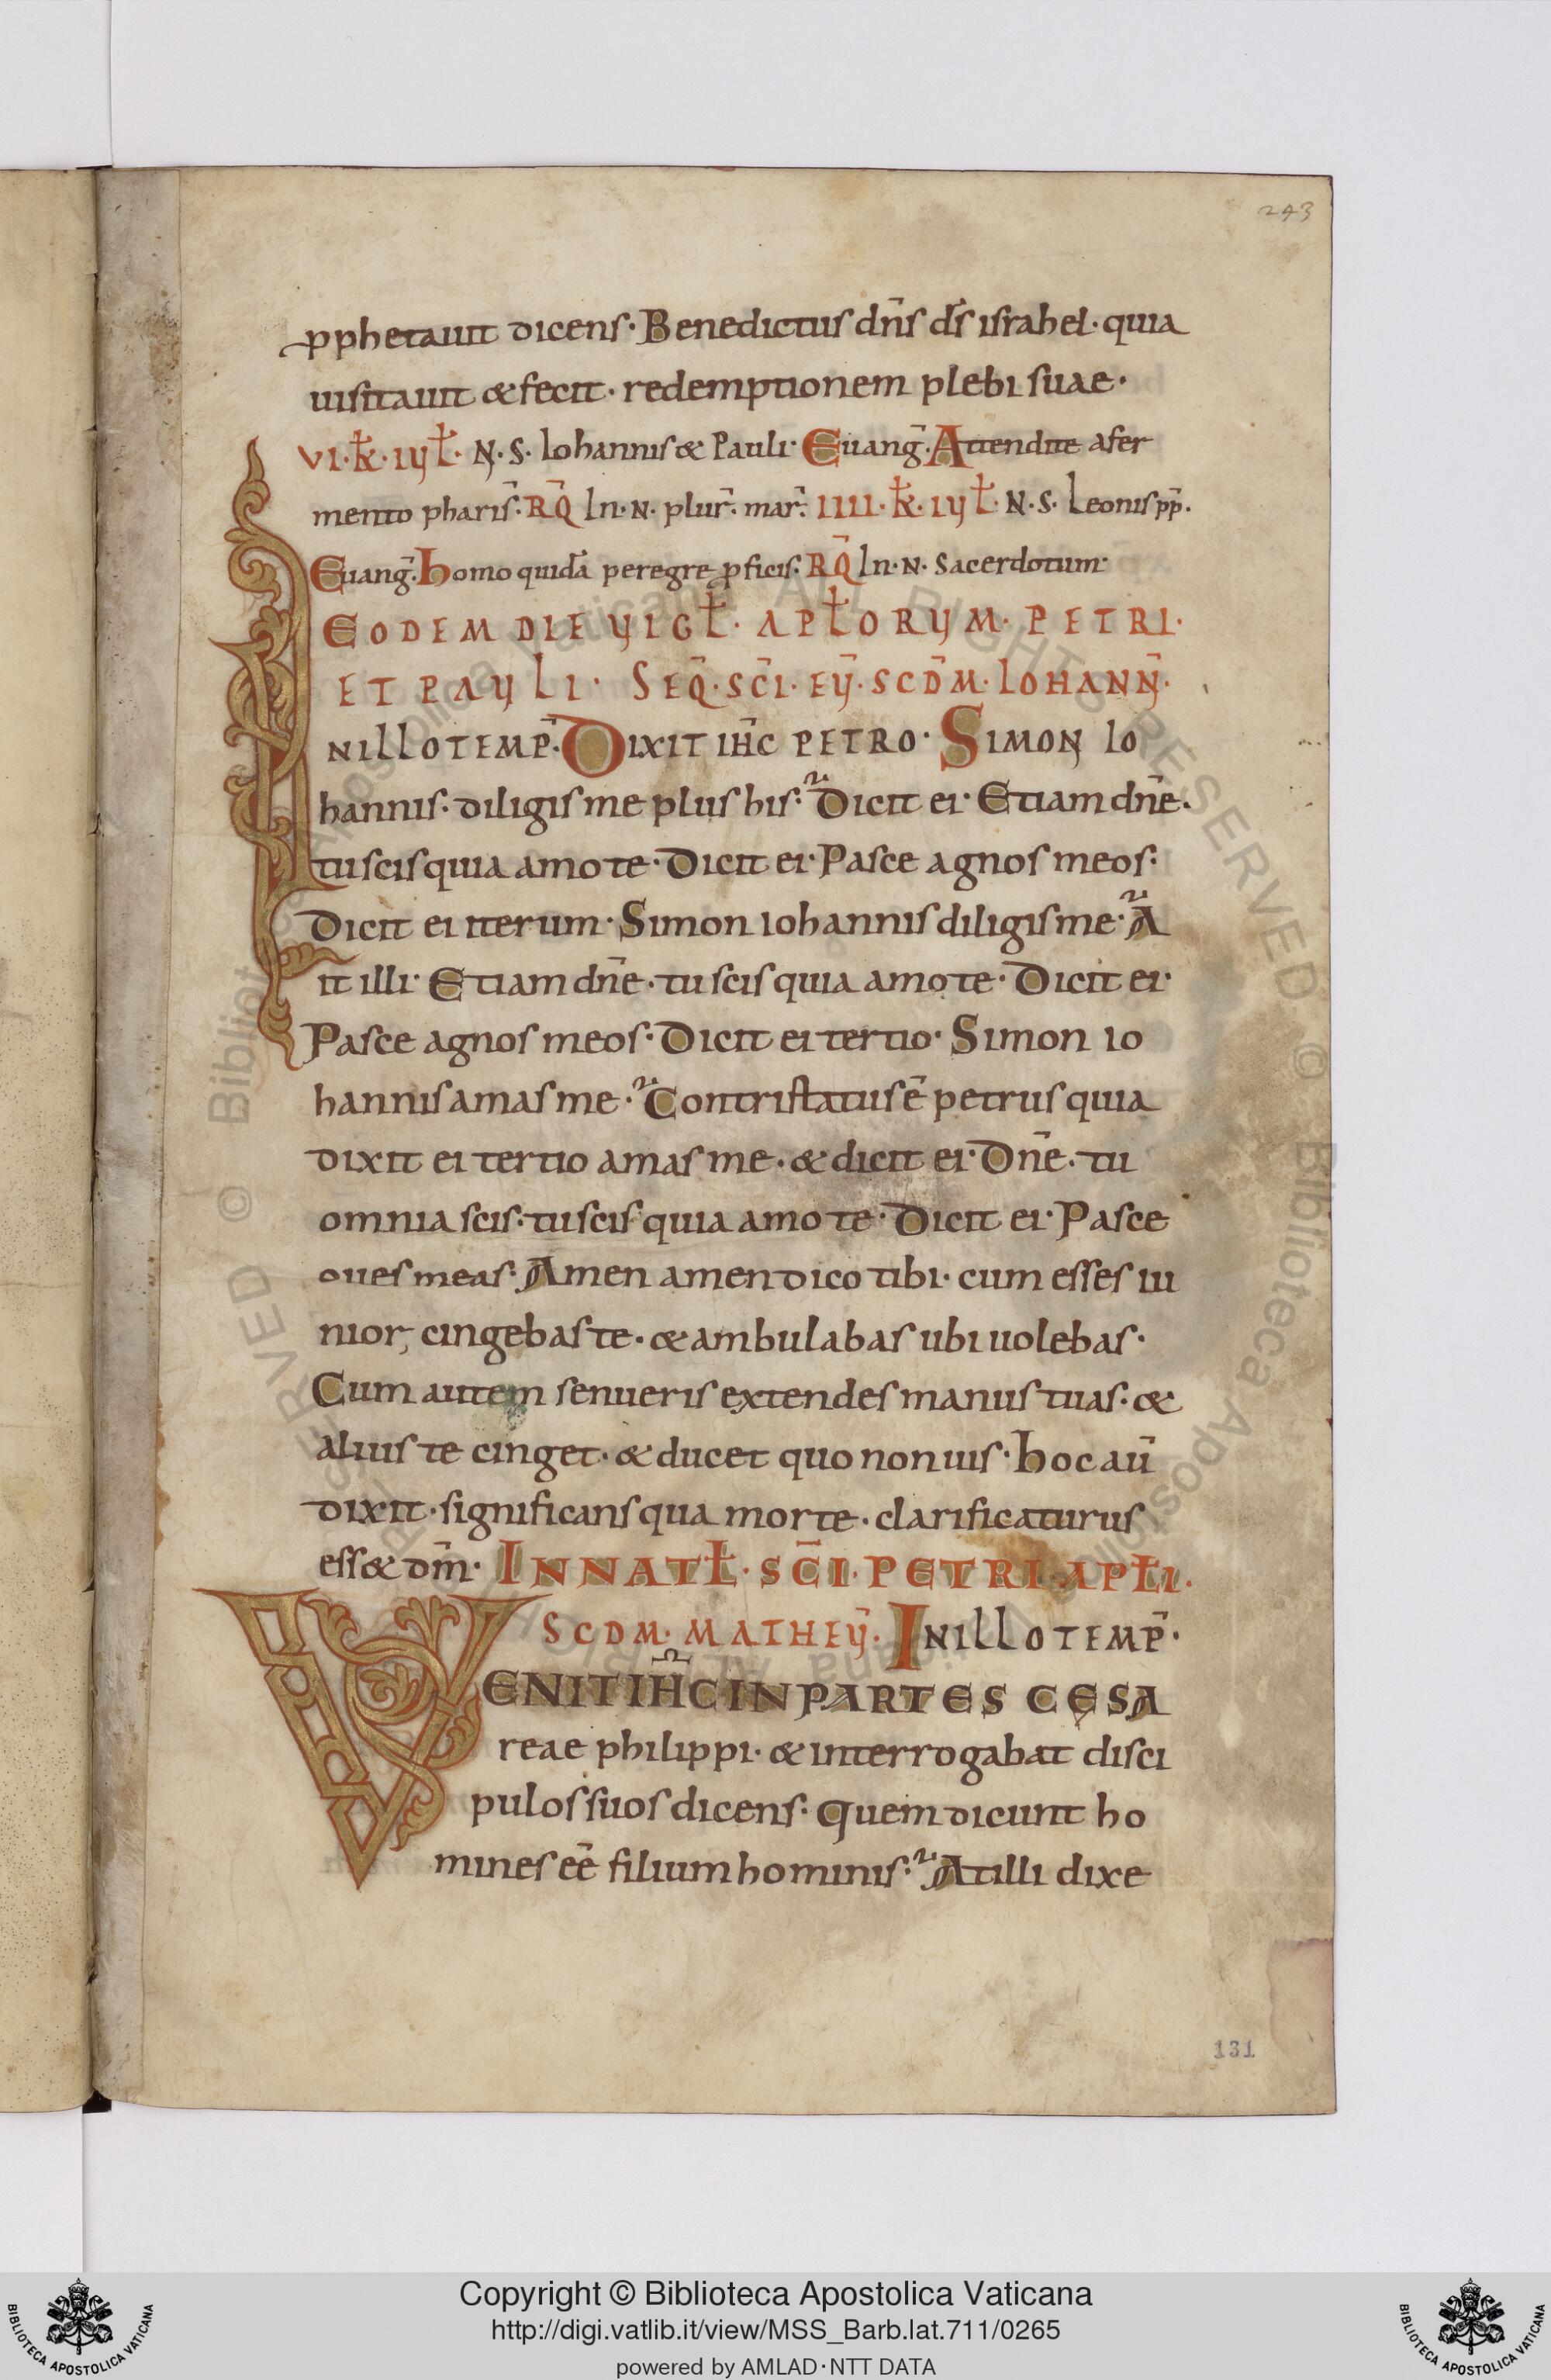 243
pphetauit dicens· Benedictus dn̄s d̄s israhel· quia
uisitauit & fecit· redemptionem plebi suae·
VI·k̄·IUL̄· N·S· Iohannis & Pauli· Euanḡ· Attendite afer
mento pharis̄· RQ̄ In·N· plur̄· mar̄· IIII·k̄·IUL̄· N·S· Leonis pp̄·
Euanḡ· Homo quidā peregre pficis· RQ̄ In·N· Sacerdotum·
EODEM DIE UIGL̄· APL̄ORUM· PETRI·
ET PAULI· SEQ̄· SC̄I· EŪ· SCD̄M· IOHANN̄·
NILLOTEMP̄· DIXIT IH̄C PETRO· SIMON IO
hannis· diligis me plus his· Dicit ei· Etiam dn̄e·
tu scis quia amo te· Dicit ei· Pasce agnos meos·
Dicit ei iterum· Simon iohannis diligis me· A
it illi· Etiam dn̄e· tu scis quia amo te· Dicit ei·
Pasce agnos meos· Dicit ei tertio· Simon io
hannis amas me· Contristatus ē petrus quia
dixit ei tertio amas me· & dicit ei· Dn̄e· tu
omnia scis· tu scis quia amo te· Dicit ei· Pasce
oues meas· Amen amen dico tibi· cum esses iu
nior, cingebas te· & ambulabas ubi uolebas·
Cum autem senueris extendes manus tuas· &
alius te cinget· & ducet quo non uis· Hoc aū
dixit· significans qua morte· clarificaturus
ess& dm̄· IN NATL̄· SC̄I· PETRI· APL̄I·
SCDM· MATHEŪ· INILLOTEMP̄·
VENIT IH̄C IN PARTES CESA
reae philippi· & interrogabat disci
pulos suos dicens· Quem dicunt ho
mines eē filium hominis· At illi dixe
131
Copyright © Biblioteca Apostolica Vaticana
http://digi.vatlib.it/view/MSS_Barb.lat.711/0265
powered by AMLAD·NTT DATA
BIBLIOTECA APOSTOLICA VATICANA
BIBLIOTECA APOSTOLICA VATICANA